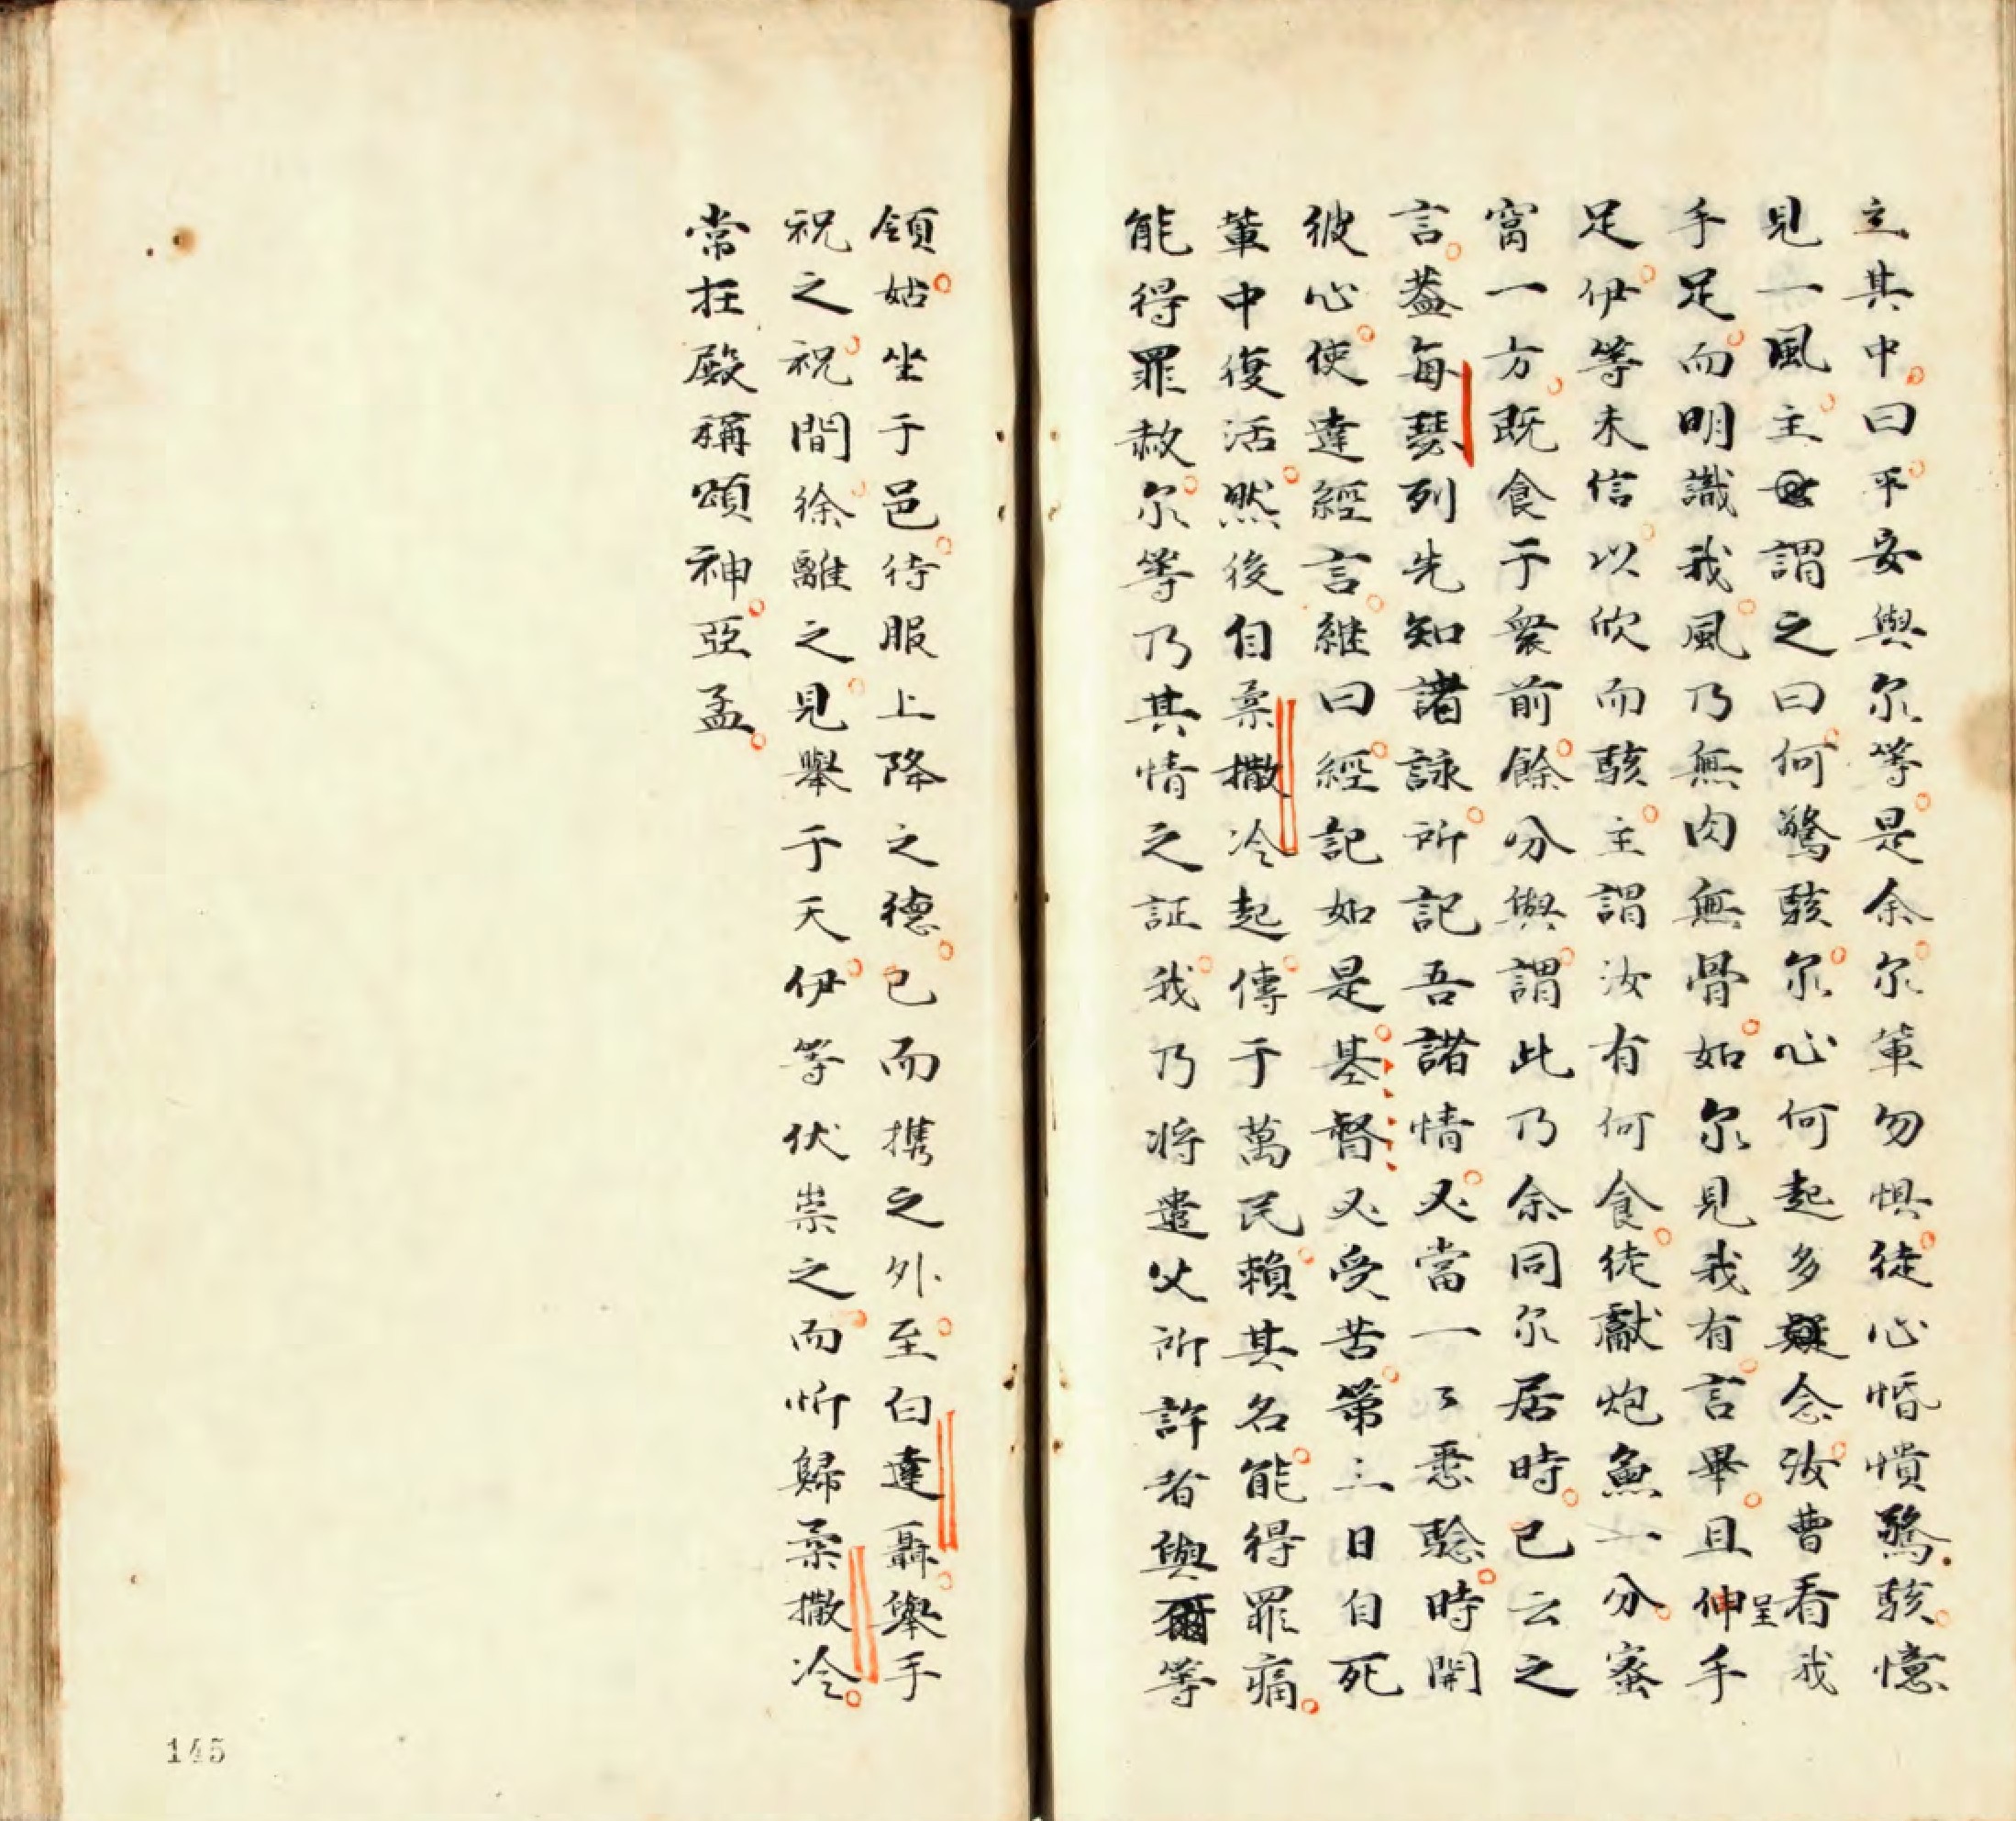 立其中曰平安與尔等是余尔輩勿惧徒心惛憒驚駭憶
見一風主謂之曰何驚駭尔心何起多疑念汝曹看我
手足而明識我風乃無肉無骨如尔見我有言畢且伸呈手
足伊等未信以欣而駭主謂汝有何食徒獻炮魚一分蜜
窩一方既食于衆前餘分與謂此乃余同尔居時已云之
言蓋每瑟列先知諸詠所記吾諸情必當一々悉驗時開
彼心使達經言継曰經記如是基督必受苦第三日自死
輩中復活然後自柔撒冷起傳于萬民賴其名能得罪痛
能得罪赦尔等乃其情之証我乃将遣父所許者與爾等
領姑坐于邑待服上降之德已而携之外至白達聶舉手
祝之祝間徐離之見舉于天伊等伏崇之而忻歸柔撒冷
常在殿稱頌神亞孟
145